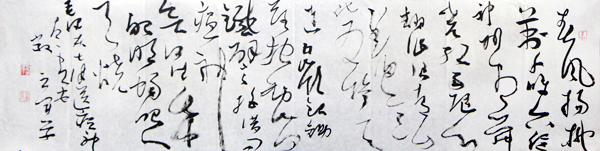 春风杨柳
万千条六亿
神州尽舜
尧红雨随心
翻作浪青山
着意化
为桥天
连五岭银锄
落地动三河
铁臂摇借问
瘟君欲
何往纸船
明烛照
天烧
七律送瘟神